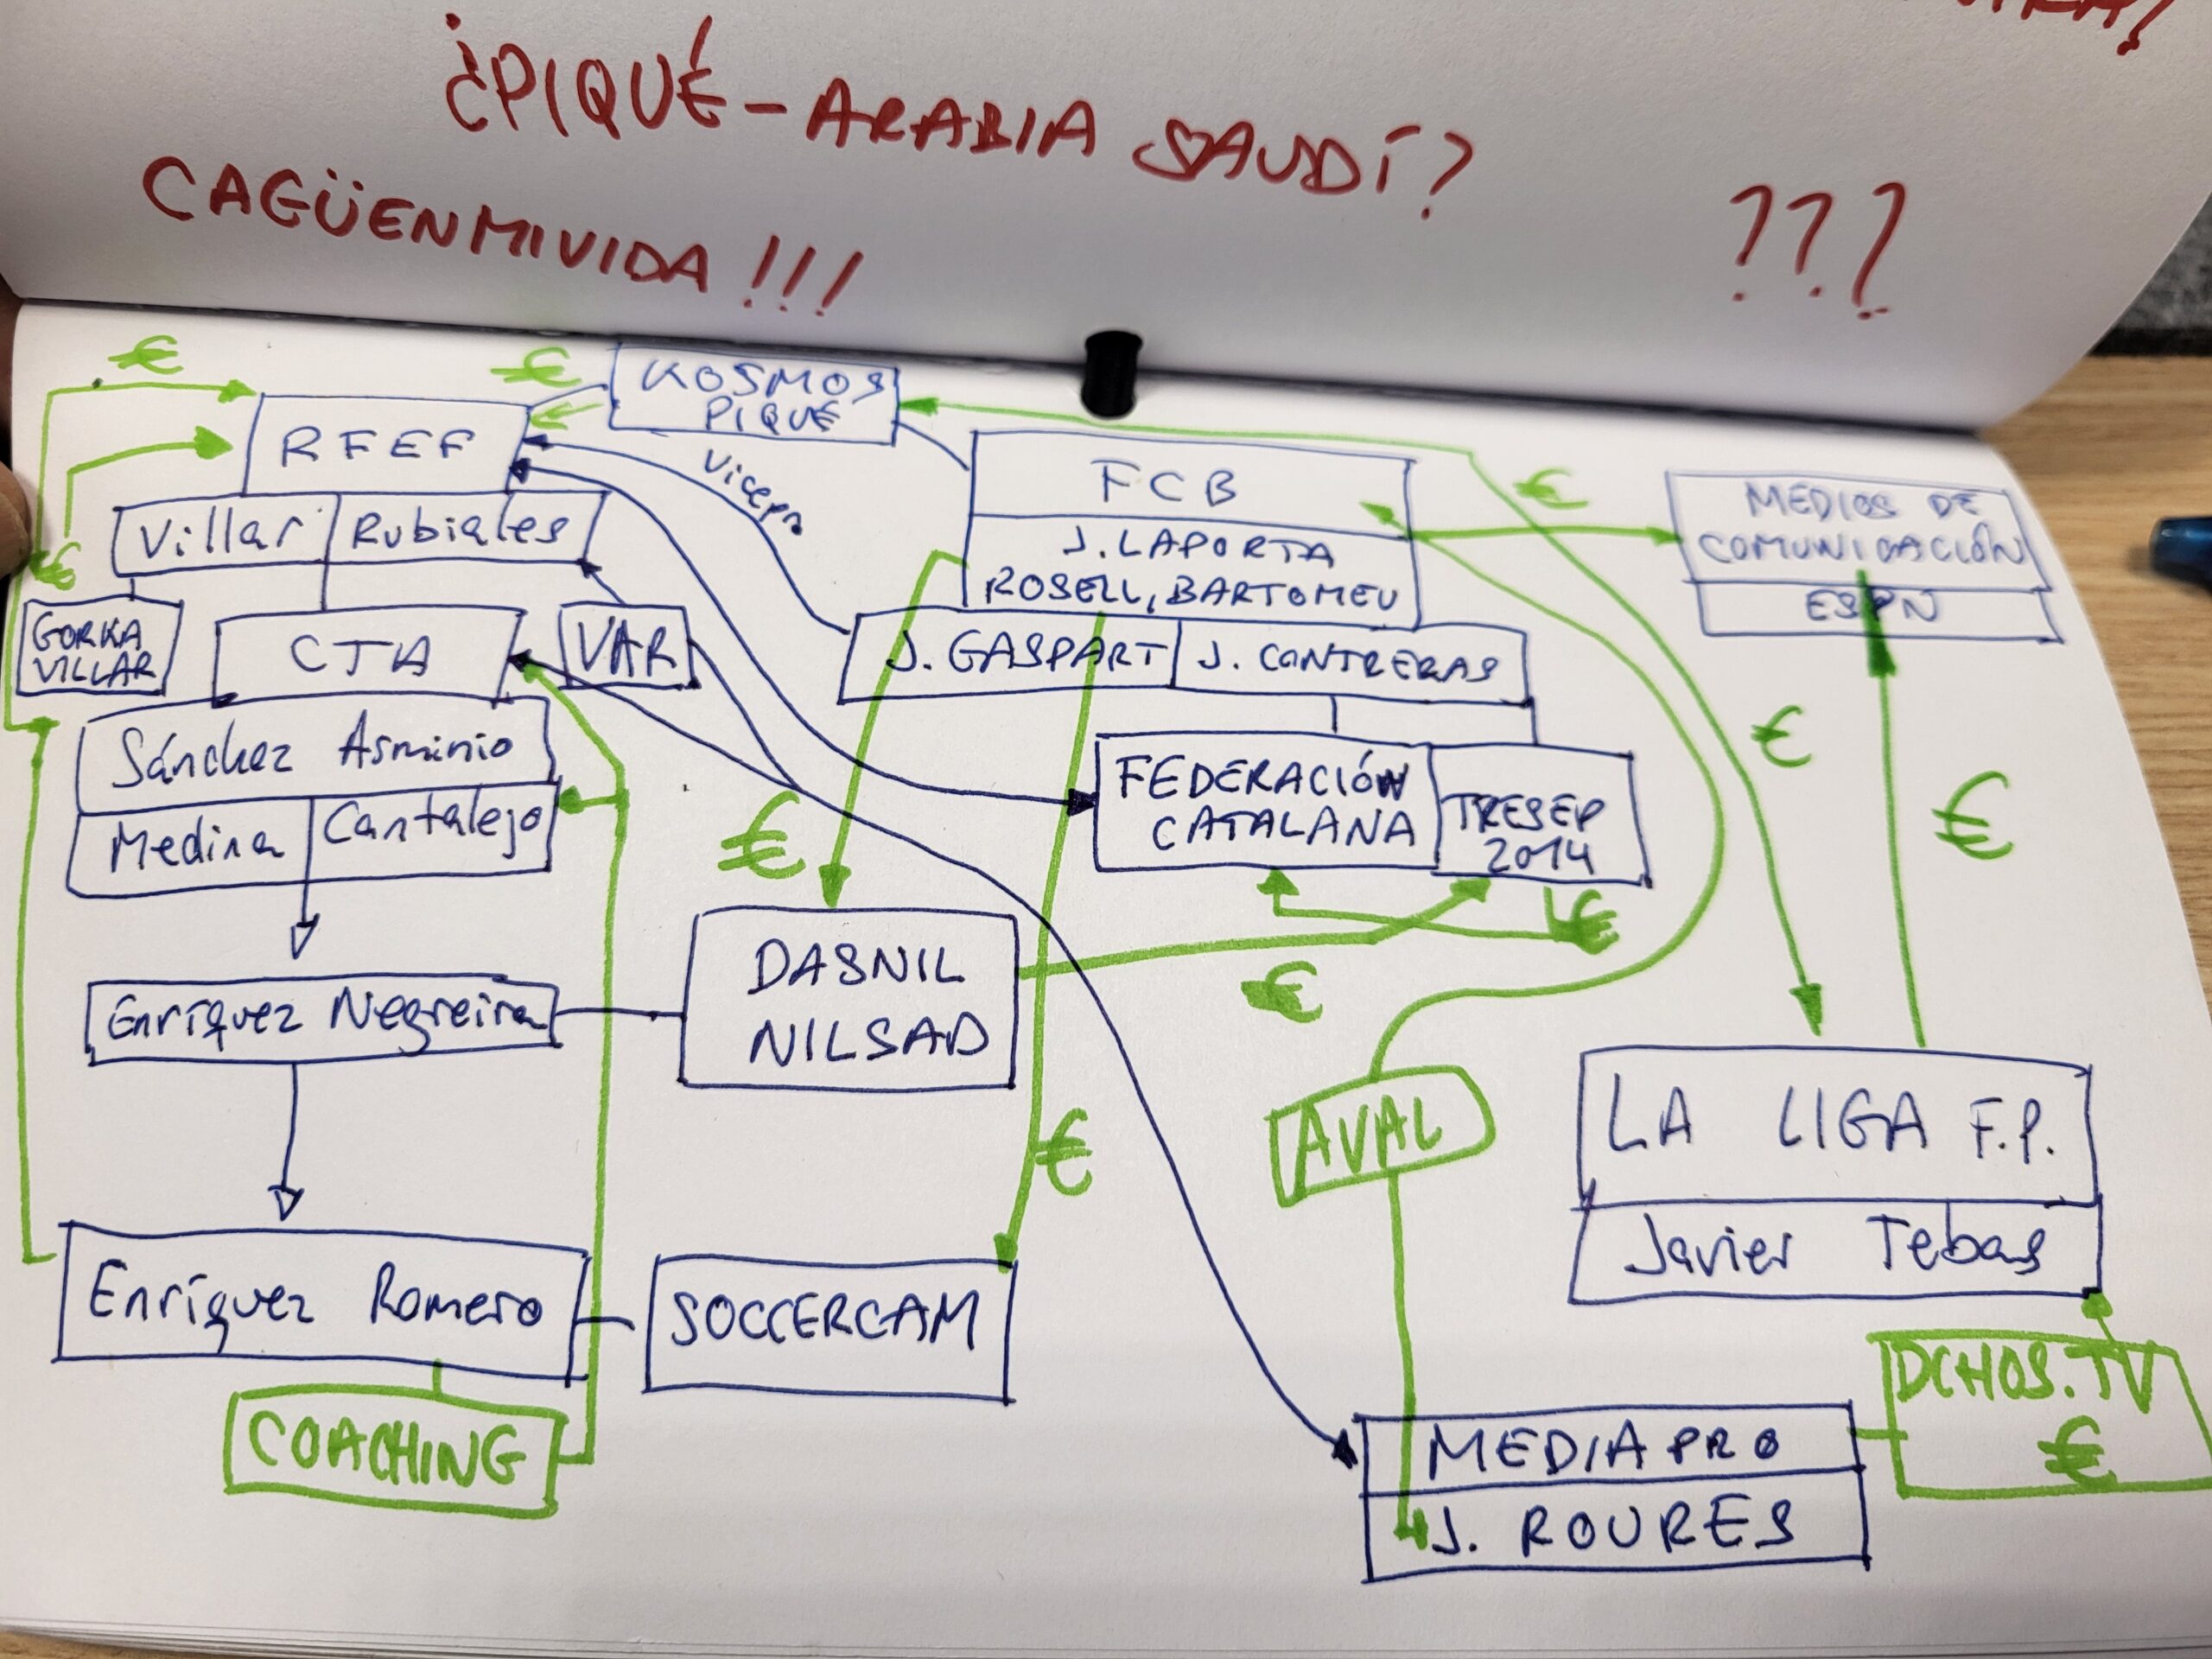 ¿PIQUÉ - ARABIA SAUDÍ?
CAGÜENMIVIDA!!!
???
€
€
KOSMOS
PIQUÉ
RFEF
Vicepr
FCB
€
MEDIOS DE
COMUNICACIÓN
Villar
Rubiales
J. LAPORTA
ROSELL, BARTOMEU
ESPN
€
GORKA
VILLAR
CTA
VAR
J. GASPART
J. CONTRERAS
€
Sánchez Asminio
FEDERACIÓN
CATALANA
TRESEP
2014
€
Medina
Cantalejo
€
€
DASNIL
NILSAD
€
Enríquez Negreira
AVAL
LA LIGA F.P.
€
Javier Tebas
Enríquez Romero
SOCCERCAM
DCHOS. TV
€
COACHING
MEDIAPRO
J. ROURES